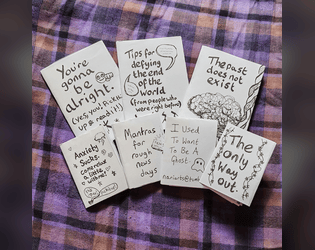 You're
gonna
be
alright.
(yes, you!
up
Tips for
defying
the end
of the
world
(from people who
were right before)
The past
does not
exist
Anxiety
Sucks:
a little
Mantras
for
rough
news
days
I Used
To Want
To Be A
Ghost
The
only
way
out.